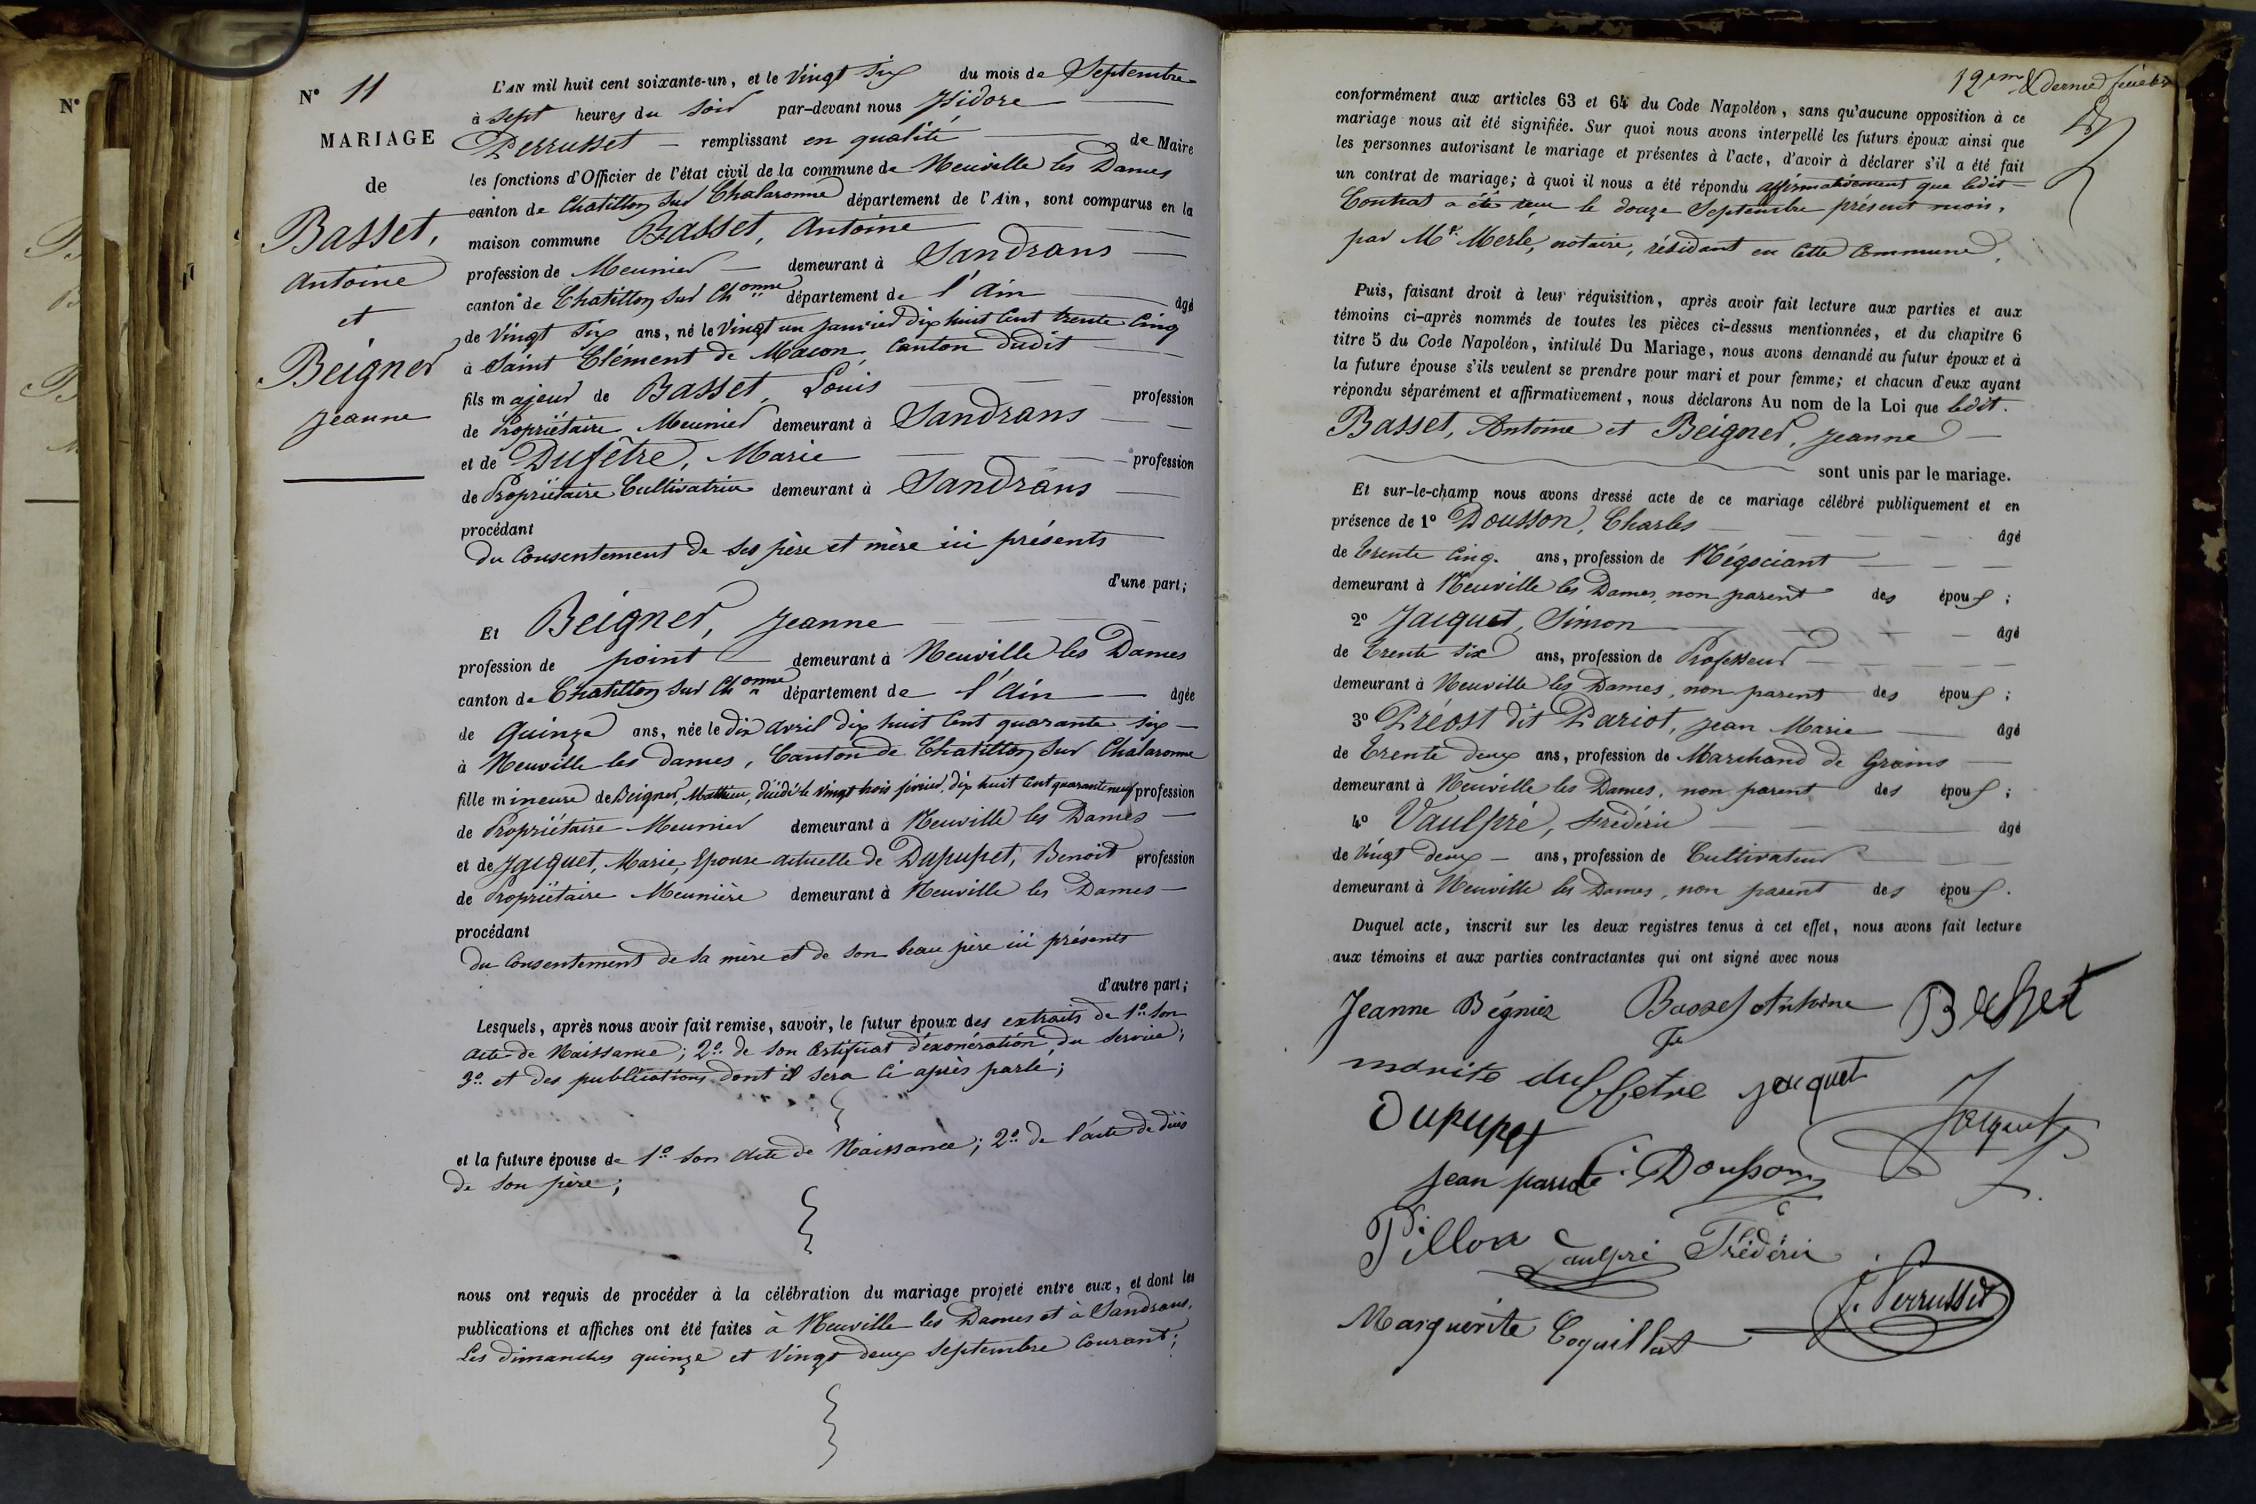 N°
N° 11
MARIAGE
de
Basset,
Antoine
et
Beigner
Jeanne
L'AN mil huit cent soixante-un, et le Vingt six du mois de Septembre
à Sept heures du Soir par-devant nous Isidore
Perrusset remplissant en qualité de Maire
les fonctions d'Officier de l'état civil de la commune de Neuville les Dames
canton de Chatillon sur Chalaronne département de l'Ain, sont comparus en la
maison commune Basset, Antoine
profession de Meunier demeurant à Sandrans
canton de Chatillon sur Chonne département de l'Ain âgé
de Vingt Six ans, né le Vingt un Janvier dix huit Cent trente Cinq
à Saint Clément de Macon, Canton dudit
fils majeur de Basset, Louis profession
de Propriétaire Meunier demeurant à Sandrans
et de Dufêtre, Marie profession
de Propriétaire Cultivatrice demeurant à Sandrans
procédant
du Consentement de ses père et mère ici présents
d'une part;
Et Beigner, Jeanne
profession de point demeurant à Neuville les Dames
canton de Chatillon sur Chonne département de l'Ain âgée
de Quinze ans, née le Dix avril dix huit Cent quarante six
à Neuville les dames, Canton de Chatillon sur Chalaronne
fille mineure de Beigner, Mathieu, décédé le vingt trois février, dix huit Cent quarante neuf profession
de Propriétaire Meunier demeurant à Neuville les Dames
et de Jacquet, Marie, Epouse actuelle de Dupupet, Benoit profession
de Propriétaire Meunière demeurant à Neuville les Dames
procédant
du Consentement de sa mère et de son beau père ici présents
d'autre part;
Lesquels, après nous avoir fait remise, savoir, le futur époux des extraits de 1° son
acte de Naissance; 2° de son Certificat d'exonération du service;
3° et des publications dont il sera Ci après parlé;
et la future épouse de 1° son acte de Naissance; 2° de l'acte de décès
de son père;
nous ont requis de procéder à la célébration du mariage projeté entre eux, et dont les
publications et affiches ont été faites à Neuville les Dames et à Sandrans,
Les dimanches quinze et Vingt deux Septembre Courant;
12em & dernier feuillet
conformément aux articles 63 et 64 du Code Napoléon, sans qu'aucune opposition à ce
mariage nous ait été signifiée. Sur quoi nous avons interpellé les futurs époux ainsi que
les personnes autorisant le mariage et présentes à l'acte, d'avoir à déclarer s'il a été fait
un contrat de mariage; à quoi il nous a été répondu affirmativement que ledit
Contrat a été reçu le douze Septembre présent mois,
par Me. Merle, notaire, résidant en cette Commune,
Puis, faisant droit à leur réquisition, après avoir fait lecture aux parties et aux
témoins ci-après nommés de toutes les pièces ci-dessus mentionnées, et du chapitre 6
titre 5 du Code Napoléon, intitulé Du Mariage, nous avons demandé au futur époux et à
la future épouse s'ils veulent se prendre pour mari et pour femme; et chacun d'eux ayant
répondu séparément et affirmativement, nous déclarons Au nom de la Loi que ledit.
Basset, Antoine et Beigner, Jeanne
sont unis par le mariage.
Et sur-le-champ nous avons dressé acte de ce mariage célébré publiquement et en
présence de 1° Dousson, Charles âgé
de Trente Cinq. ans, profession de Négociant
demeurant à Neuville les Dames, non parent des époux;
2° Jacquet, Simon âgé
de Trente six ans, profession de Professeur
demeurant à Neuville les Dames, non parent des époux;
3° Préost dit Pariot, Jean Marie âgé
de Trente deux ans, profession de Marchand de Grains
demeurant à Neuville les Dames, non parent des époux;
4° Vaulpré, Frédéric âgé
de Vingt deux ans, profession de Cultivateur
demeurant à Neuville les Dames, non parent des époux.
Duquel acte, inscrit sur les deux registres tenus à cet effet, nous avons fait lecture
aux témoins et aux parties contractantes qui ont signé avec nous
Jeanne Bégnier Basset Antoine Basset
dufetre jacquet
Dupupet Jacquet
jean C. Dousson
Pillon Vaulpré Frédéric
Marguerite Coquillat J. Perrusset